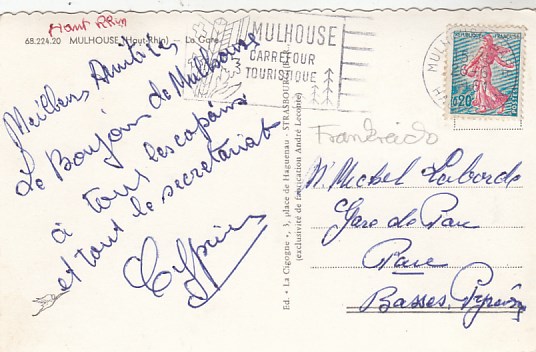 Haut Rhin
68.224.20 MULHOUSE (Haut-Rhin) — La Gare
MULHOUSE
CARREFOUR
TOURISTIQUE
REPUBLIQUE FRANÇAISE
0,20
POSTES
MULH
Meilleurs Amitiés
Le Bonjour de Mulhouse
à tous les copains
et tout le secrétariat
Ed. « La Cigogne », 3, place de Haguenau - STRASBOURG
(exclusivité de fabrication André Leconte)
Frankreich
M. Michel Laborde
Gare de Pau
Pau
Basses Pyrénées